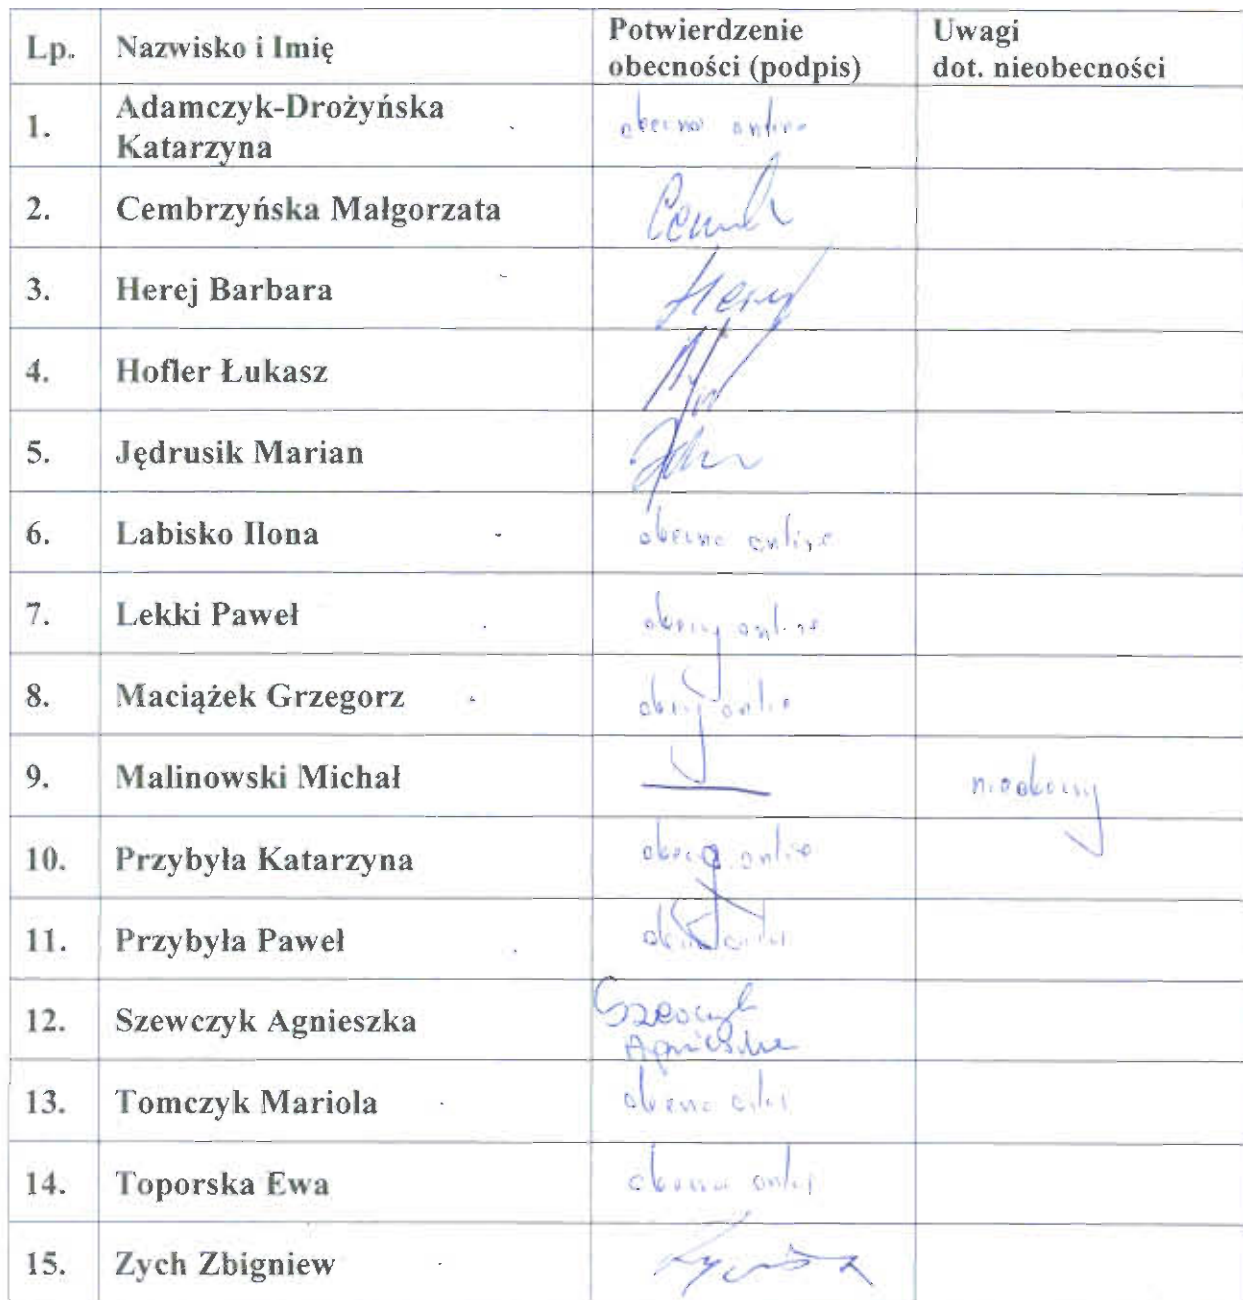 Lp. Nazwisko i Imię Potwierdzenie obecności (podpis) Uwagi dot. nieobecności
1. Adamczyk-Drożyńska Katarzyna obecna online
2. Cembrzyńska Małgorzata
3. Herej Barbara
4. Hofler Łukasz
5. Jędrusik Marian
6. Labisko Ilona obecna online
7. Lekki Paweł obecny online
8. Maciążek Grzegorz obecny online
9. Malinowski Michał — nieobecny
10. Przybyła Katarzyna online
11. Przybyła Paweł
12. Szewczyk Agnieszka Szewczyk
Agnieszka
13. Tomczyk Mariola obecna
14. Toporska Ewa obecna
15. Zych Zbigniew